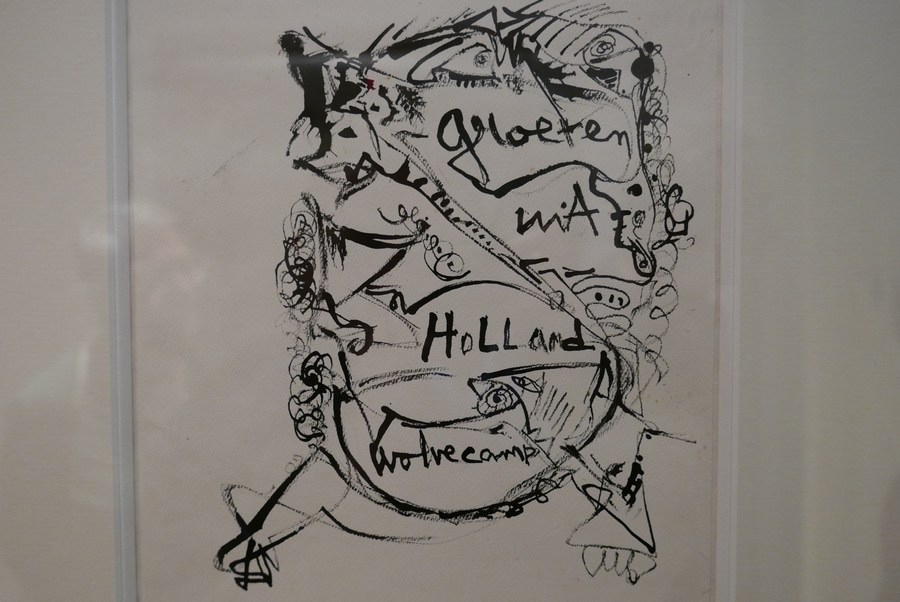 groeten
uit
Holland
Wolvecamp